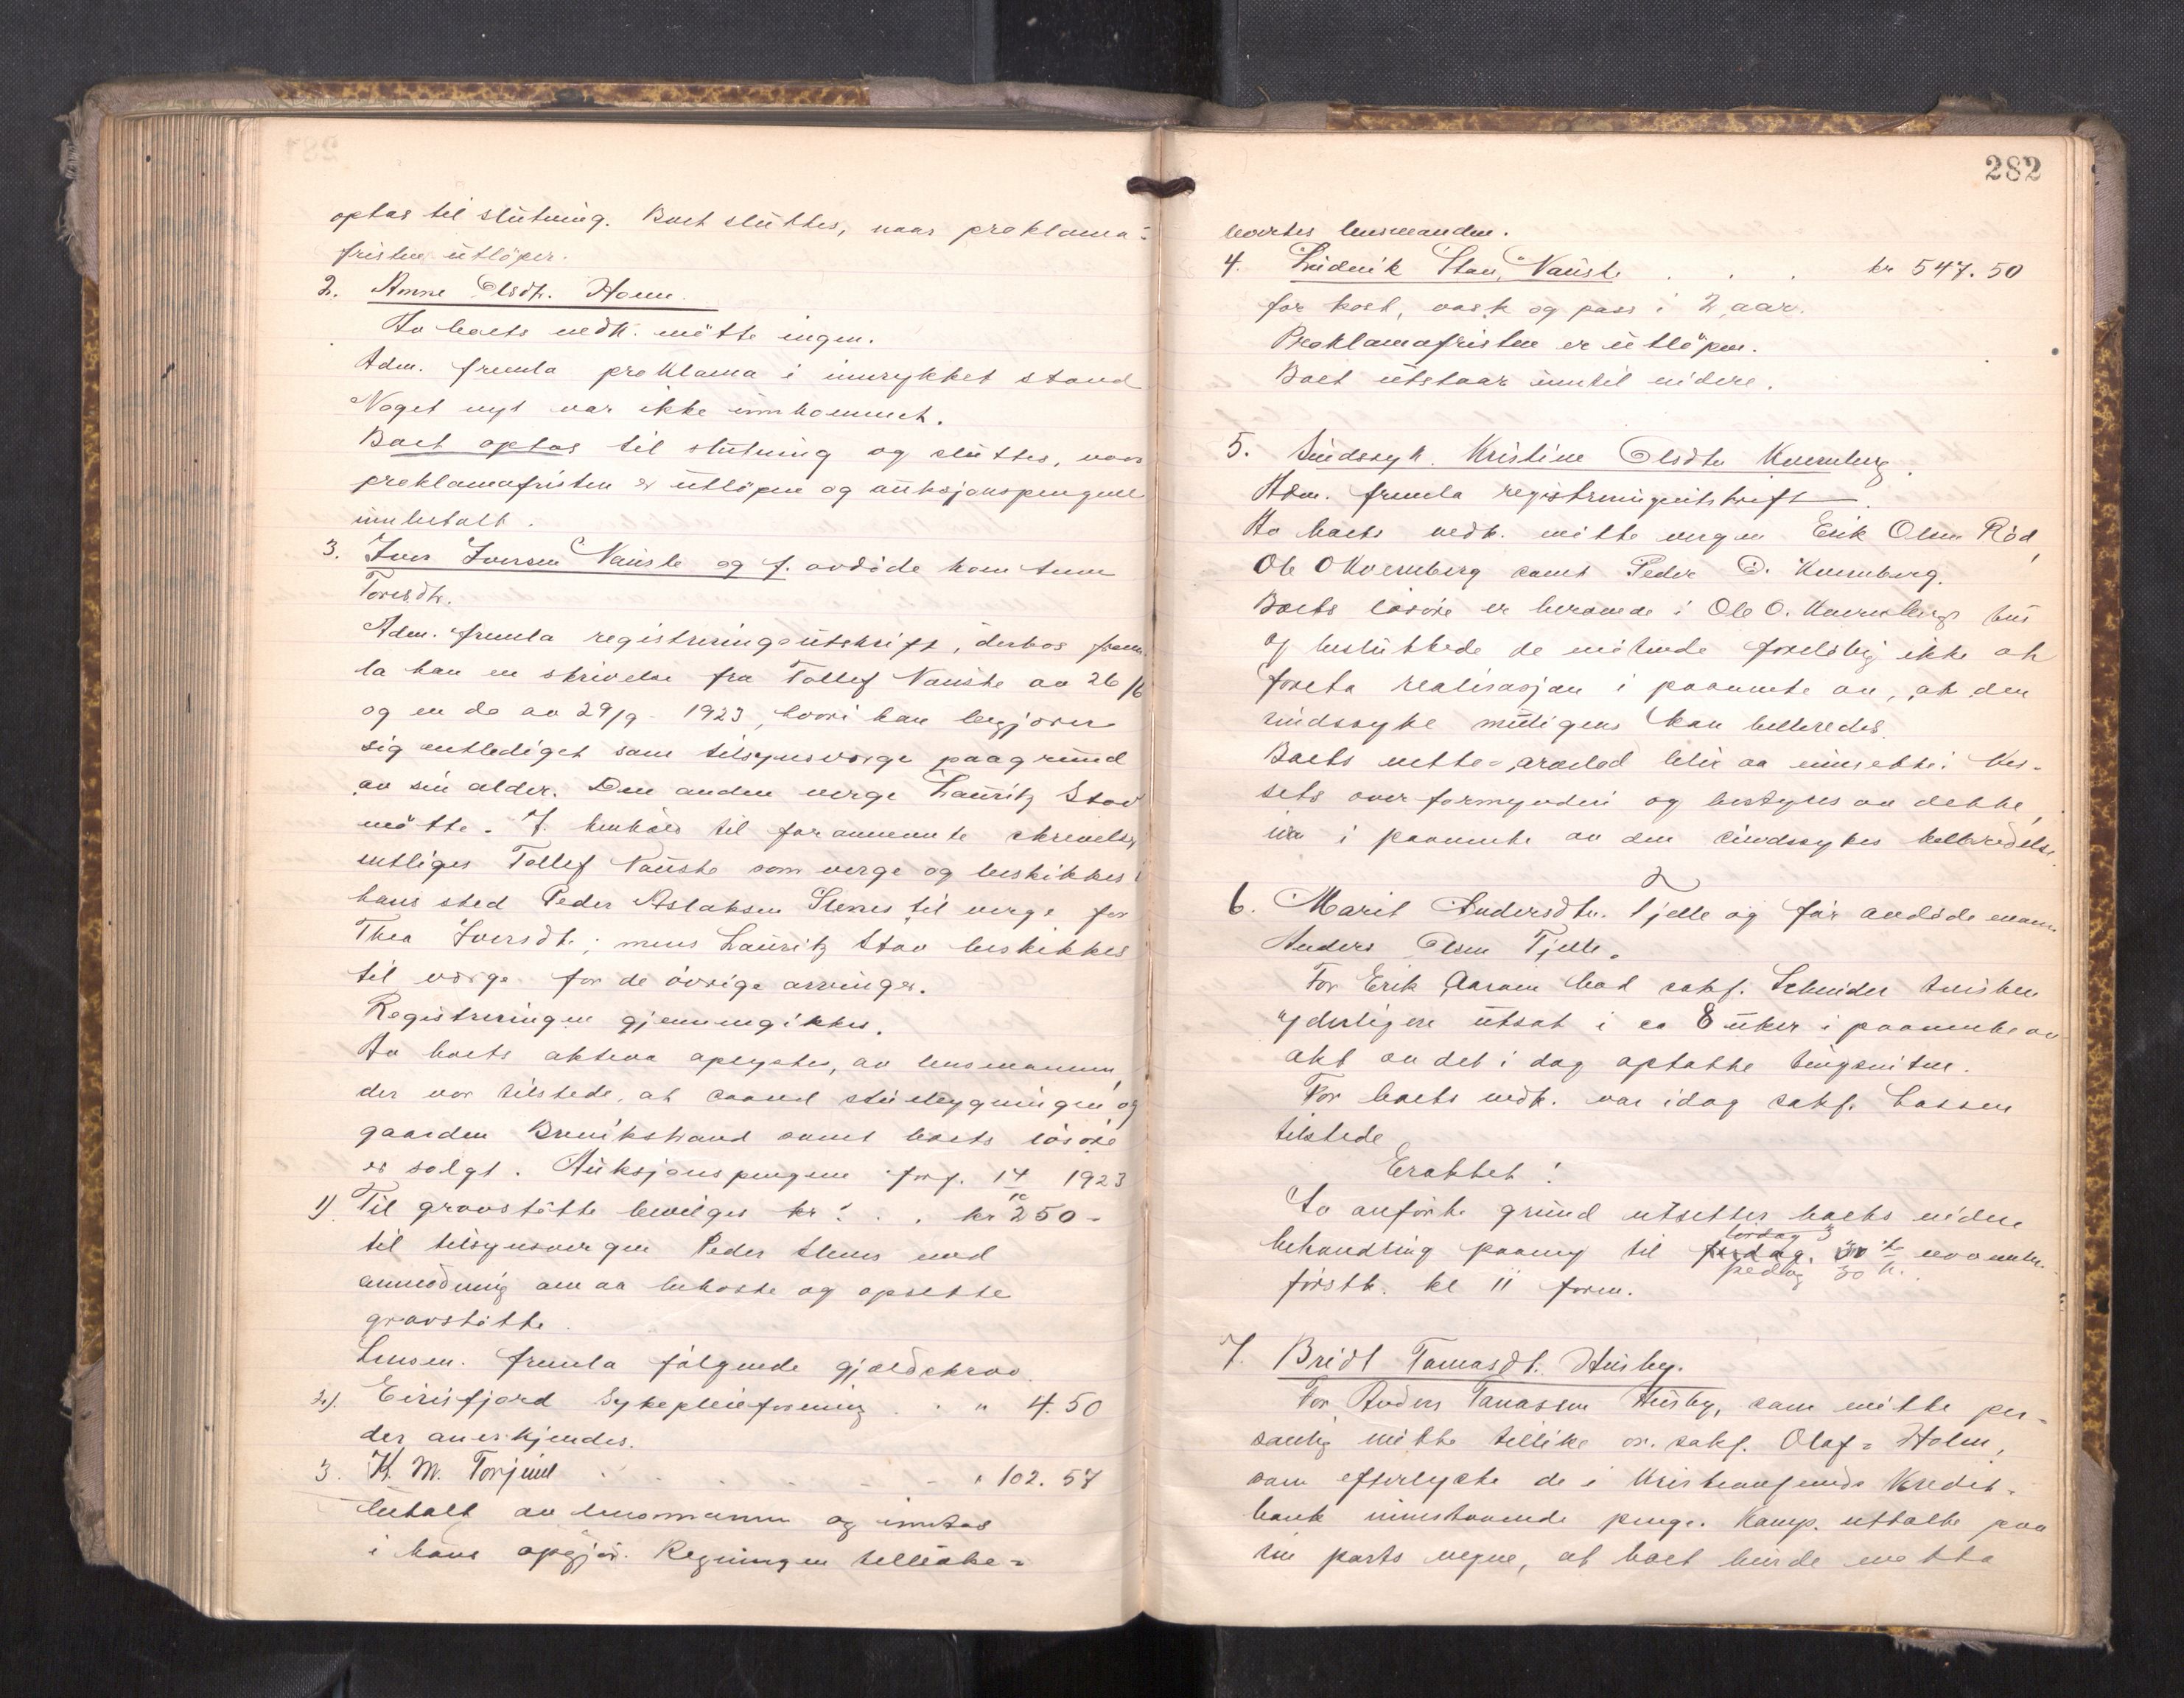 optas til slutning. Boet sluttes, naar proklama-
fristen utløper.
2. Anne Olsdtr. Houe.
Av boets vedk. møtte ingen.
Adm. fremla proklama i innrykket stand
Noget nyt var ikke innkommet.
Boet optas til slutning og sluttes, naar
proklamafristen er utløpen og auksjonspengene
innbetalt.
3. Iver Iversen Nauste og f. avdøde kone Anne
Toresdtr.
Adm. fremla registreringsutskrift, derhos frem-
la han en skrivelse fra Tollef Nauste av 26/6
og en do av 29/9 1923, hvori han begjærer
sig entlediget som tilsynsverge paagrund
av sin alder. Den anden verge Lauritz Stav
møtte. I henhold til forannevnte skrivelse
entliges Tollef Nauste som verge og beskikkes i
hans sted Peder Aslaksen Stenes til verge for
Thea Iversdtr; mens Lauritz Stav beskikkes
til verge for de øvrige arvinger.
Registreringen gjennemgikkes.
Av boets aktiva oplystes, av lensmannen,
der var tilstede, at saavel stuebygningen og
gaarden Brunikstrand samt boets løsøre
er solgt. Auksjonspengene forf. 14/10 1923
1) Til gravstøtte bevilges kr: . . kr 250-
til tilsynsvergen Peder Stenes med
anmodning om aa bekoste og opsette
gravstøtte.
Lensm. fremla følgende gjældskrav.
2). Eirisfjord Sykepleieforening . . " 4.50
der anerkjendes.
3. K. M. Torjuul . . . . . " 102.57
betalt av lensmannen og inntas
i hans opgjør. Regningen tilleiebe-
282
vartes lensmanden.
4. Ludvik Stav, Nauste . . . kr 547.50
for kost, vask og pass i 2 aar.
Proklamafristen er utløpen.
Boet utstaar inntil videre.
5. Sindssyk. Kristine Olsdtr Kvernberg.
Adm. fremla registreringsutskrift.
Av boets vedk. møtte vergen Erik Olsen Rød,
Ole O Kvernberg samt Peder O. Kvernberg.
Boets løsøre er beroende i Ole O. Kvernbergs hus
og besluttede de møtende foreløbig ikke at
foreta realisasjon i paavente av, at den
sindssyke muligens kan helbredes.
Boets netto-arvelod blir aa innsette i Nes-
sets overformynderi og bestyres av dette,
i paavente av den sindssykes helbredelse.
6. Marit Andersdtr. Tjelle og før avdøde mann
Anders Olsen Tjelle.
For Erik Aarøen bad sakf. Schnider tvisten
yderligere utsat i ca 8 uker i paavente av
akt av det i dag optatte tingsvitne.
For boets vedk. var idag sakf. Lassen
tilstede
Eraktet:
Av anførte grund utsettes boets videre
lørdag 3
behandling paany til fredag. 30te november
fredag 30 n.
førstk. kl 11 form.
7. Bridt Tomasdt. Husby.
For Anders Tomassen Husby, som møtte per-
sonlig møtte tillike or. sakf. Olaf Holm,
som efterlyste de i Kristiansunds Kredit-
bank innestaaende penge. Komp. uttalte paa
sin parts vegne, at boet burde motta